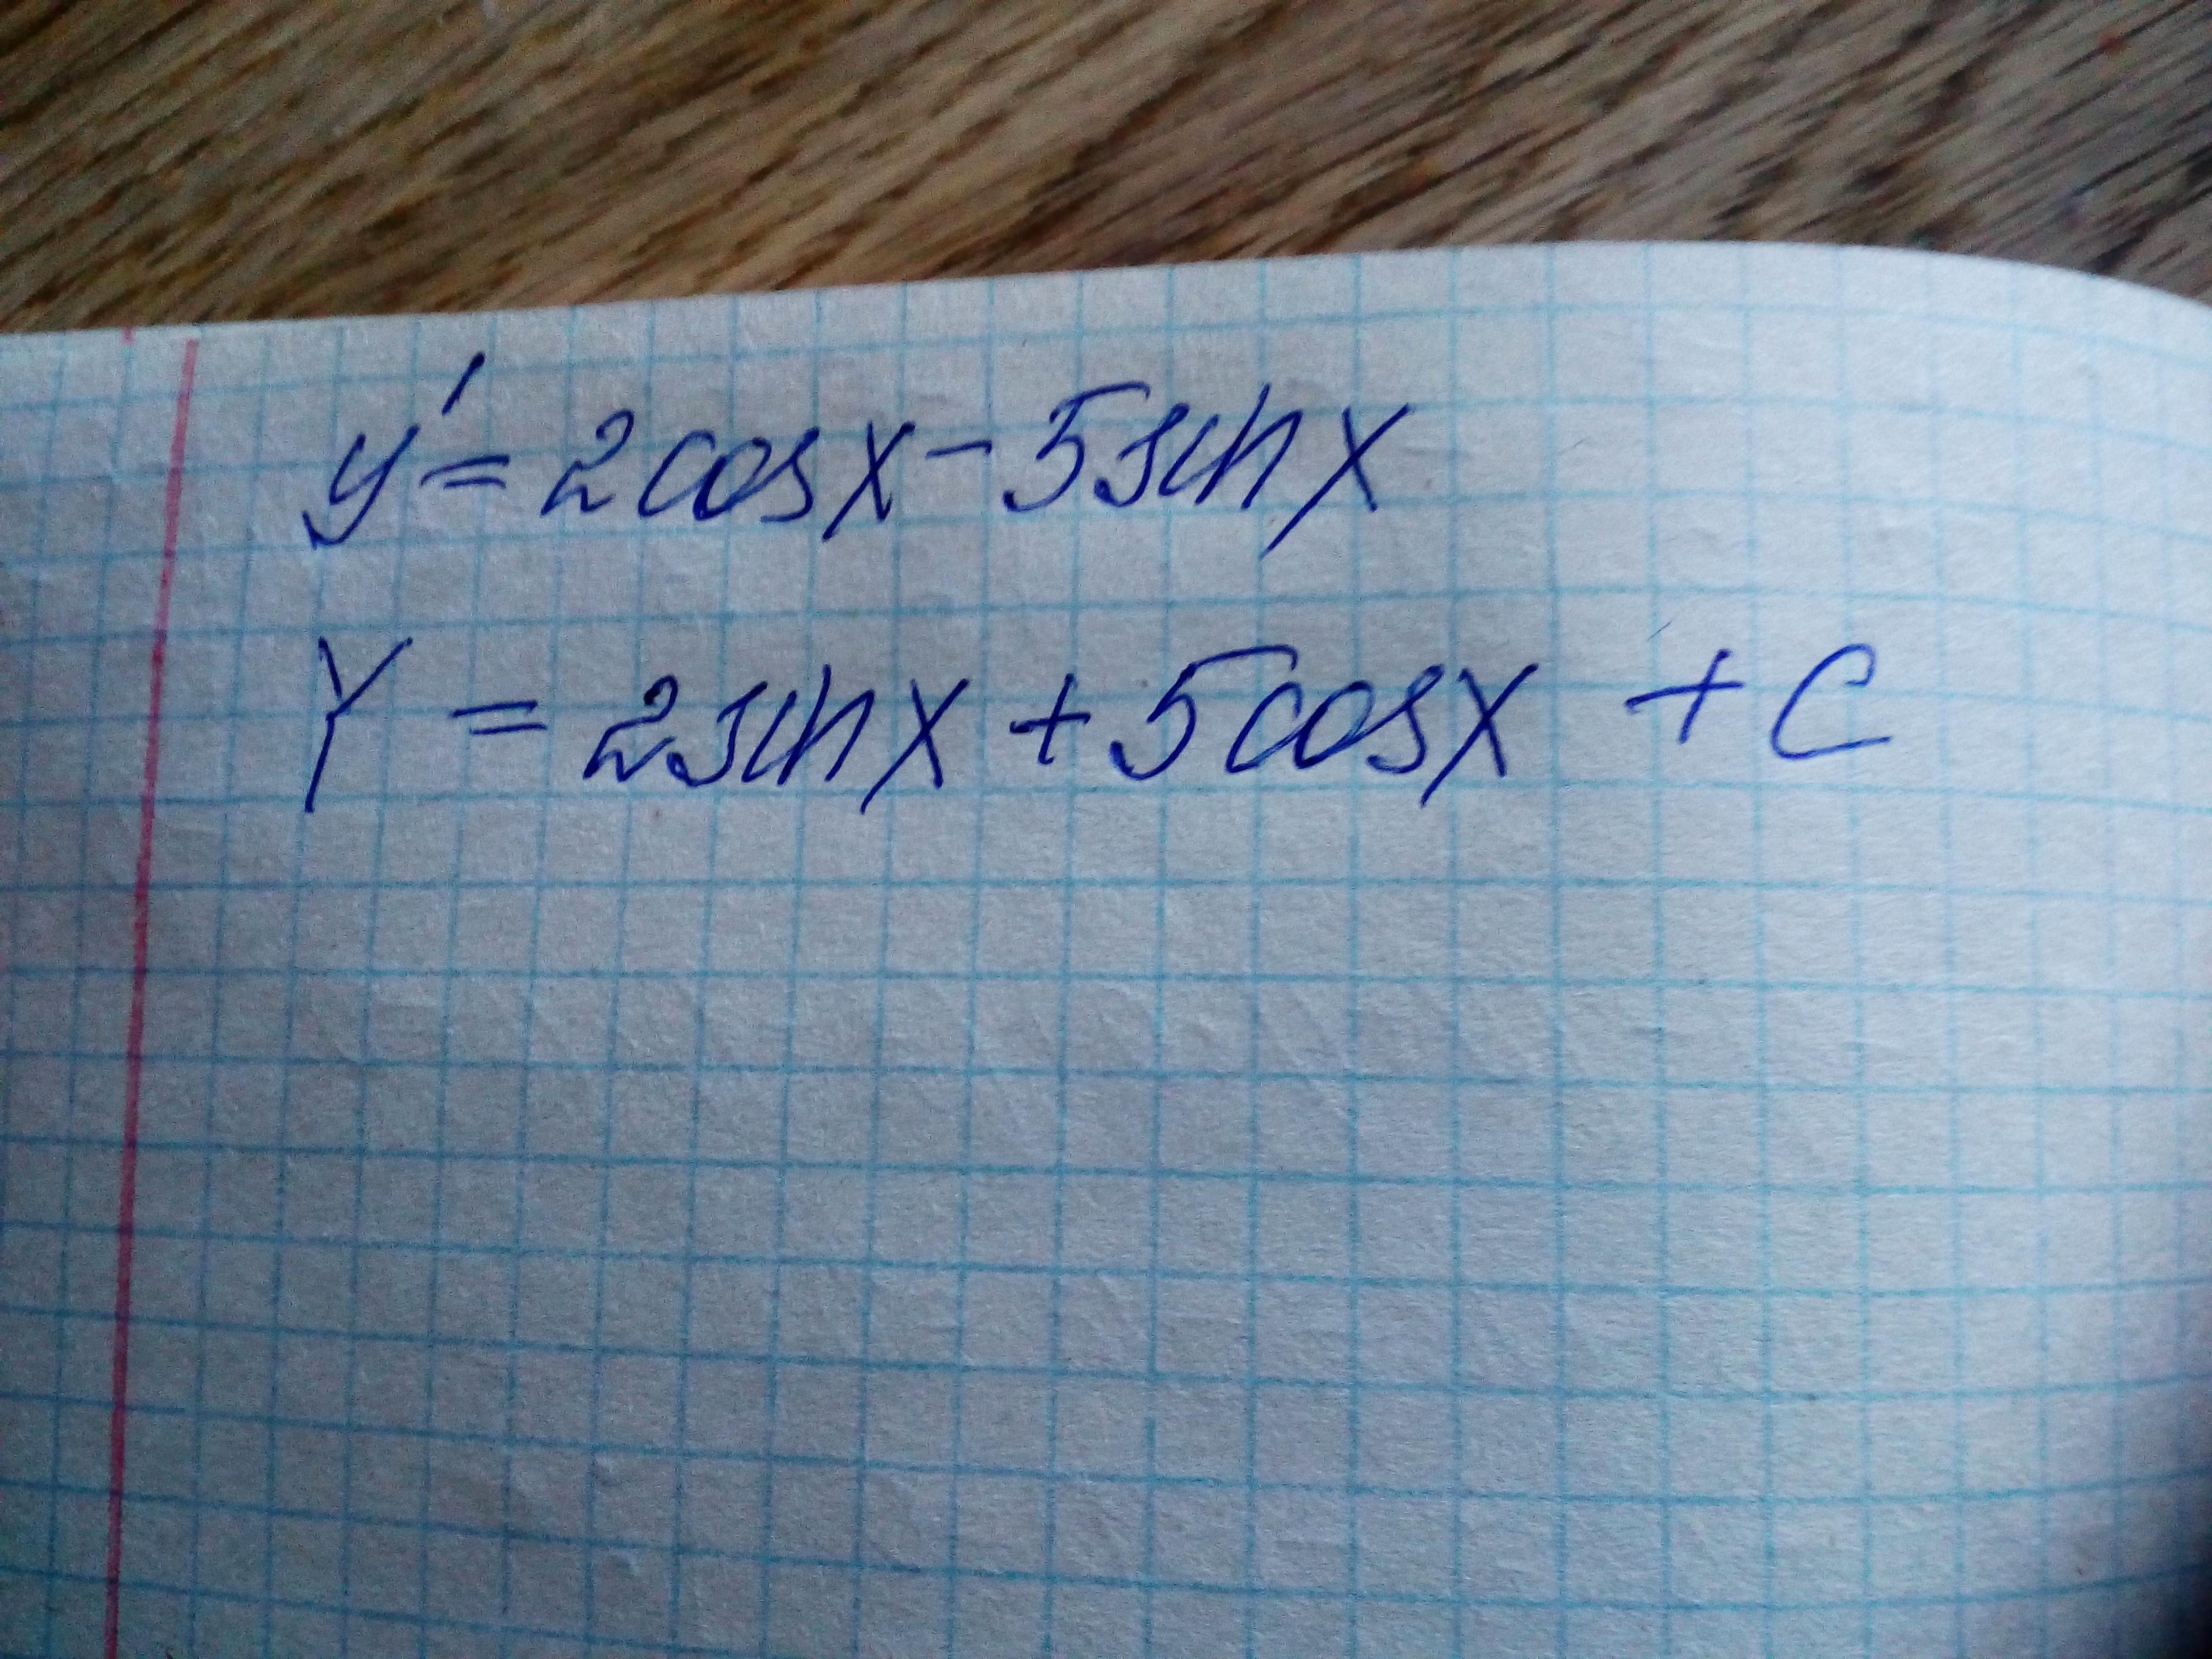 y' = 2cosx - 5sinx
Y = 2sinx + 5cosx + C